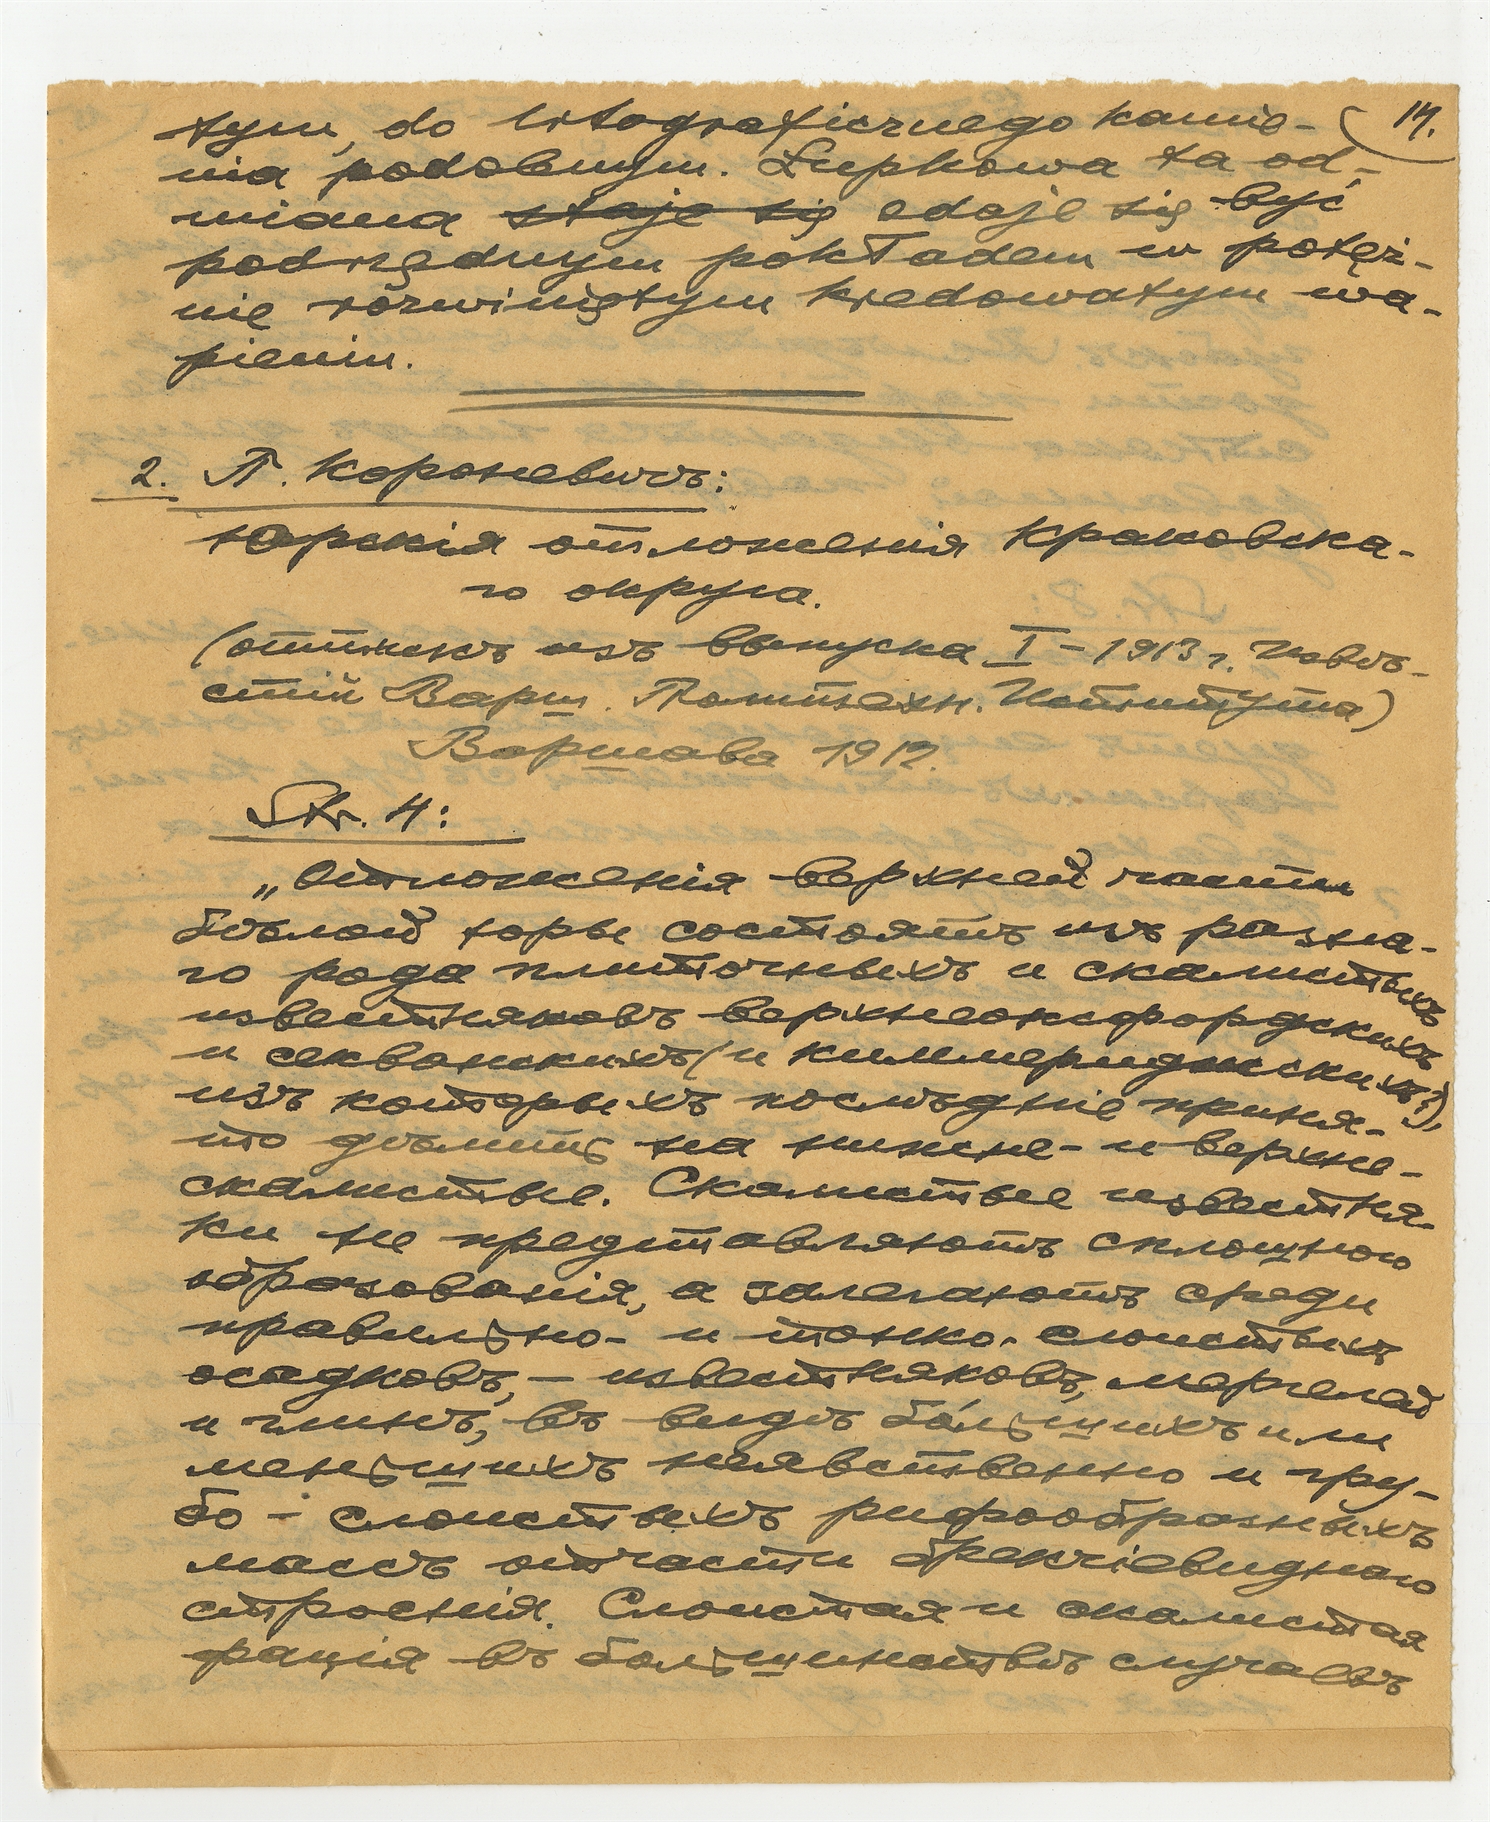 14.
tym, do litograficznego kamie-
nia podobnym. Łupkowa ta od-
miana staje się zdaje się być
podrzędnym pokładem w potęż-
nie rozwiniętym kredowatym wa-
pieniu.
2. П. Короневичъ:
Юрскія отложенія Краковска-
го округа.
(оттискъ изъ выпуска I - 1913 г. Извѣ-
стій Варш. Политехн. Института)
Варшава 1912.
Str. 4:
„Отложенія верхней части
бѣлой юры состоятъ изъ разна-
го рода плиточныхъ и скалистыхъ
известняковъ верхнеоксфордскихъ
и секванскихъ (и киммериджскихъ?),
изъ которыхъ послѣдніе приня-
то дѣлить на нижне- и верхне-
скалистые. Скалистые известня-
ки не представляютъ сплошного
образованія, а залегаютъ среди
правильно- и тонко-слоистыхъ
осадковъ, - известняковъ, мергелей
и глинъ, въ видѣ бо́льшихъ или
меньшихъ неявственно и гру-
бо - слоистыхъ рифообразныхъ
массъ отчасти брекчіевиднаго
строенія. Слоистая и скалистая
фація въ большинствѣ случаевъ